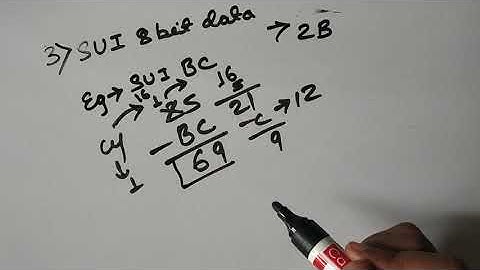 3) SUI 8 bit data → 2B
Eg → SUI BC
16 1 16
Cy 85 5
21
- BC - C → 12
1 69 9
Ca